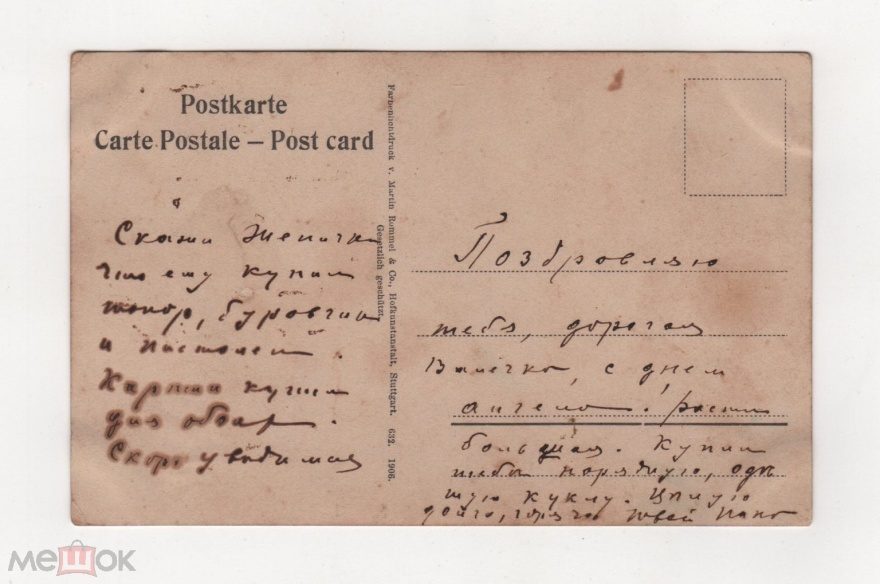 Postkarte
Carte Postale – Post card
Скажи Женичке
что ему купил
топор, буравчик
и пистолет.
Картин купил
для обоих.
Скоро увидимся
Farbenlichtdruck v. Martin Rommel & Co., Hofkunstanstalt, Stuttgart. 632. 1906.
Gesetzlich geschützt
Поздравляю
тебя, дорогая
Валечка, с днем
ангела! расти
большая. Купил
тебе нарядную, одѣ
тую куклу. Цѣлую
горячо твой папа
мешок